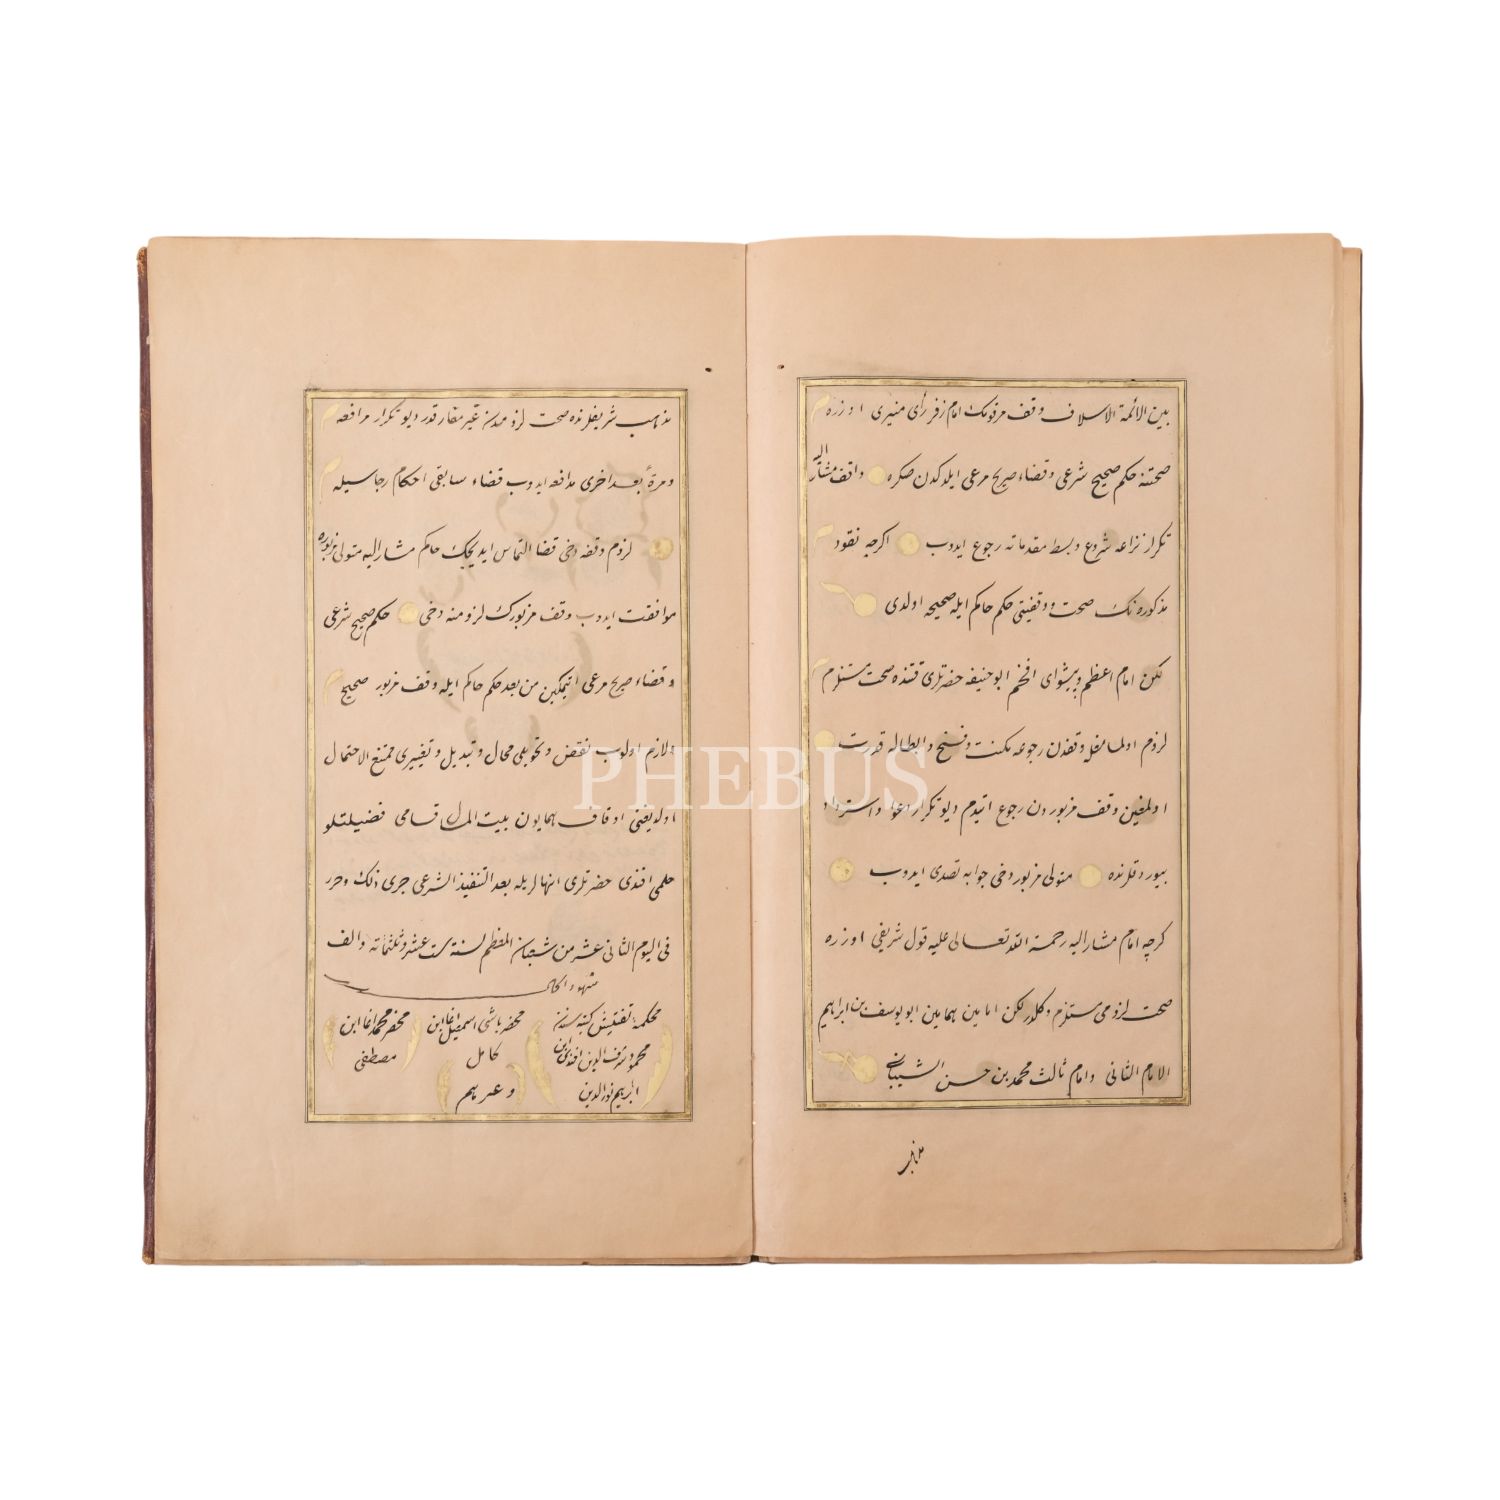 بين الائمة الاسلاف وقف مرقومك امام زفر رأى منيرى اوزره
صحتنه حكم صحيح شرعى وقضاء صريح مرعى ايلدكدن صكره واقف مشار اليه
تكرار نزاعه شروع وبسط مقدماته رجوع ايدوب اكرچه نقود
مذكوره نك صحت ووقفيتى حكم حاكم ايله صحيحه اولدى
لكن امام اعظم وپيشواى افخم ابو حنيفه حضرتلرى قتنده صحت مستلزم
لزوم اولمامغله وقفدن رجوعه مكنت وفسخ وابطاله قدرت
اولمغين وقف مزبوردن رجوع ايتدم ديو تكرار دعوا واسترداد
بيوردقلرنده متولى مزبور دخى جوابه تصدى ايدوب
كرچه امام مشار اليه رحمة الله تعالى عليه قول شريفى اوزره
صحت لزومى مستلزم دكلدر لكن امامين همامين ابو يوسف بن ابراهيم
الامام الثانى وامام ثالث محمد بن حسن الشيبانى
مذهب شريفلرنده صحت لزومدن غير مفارقدر ديو تكرار مرافعه
ومرة بعد اخرى مدافعه ايدوب قضاء سابقى احكام رجاسيله
لزوم وقفه دخى قضا التماس ايديجك حاكم مشار اليه متولى مزبوره
موافقت ايدوب وقف مزبورك لزومنه دخى حكم صحيح شرعى
وقضاء صريح مرعى ايتمكين من بعد حكم حاكم ايله وقف مزبور صحيح
ولازم اولوب نقض وتحويلى محال وتبديل وتغييرى ممتنع الاحتمال
اولديغنى اوقاف همايون بيت المال قسامى فضيلتلو
حلمى افندى حضرتلرى انهالريله بعد التنفيذ الشرعى جرى ذلك وحرر
فى اليوم الثانى عشر من شعبان المعظم لسنة ست عشر وثلثمائه والف
شهود الحال
محكمۀ تفتيش كتبه سندن محمود شرف الدين افندى ابن ابرهيم نور الدين
محضر باشى اسمعيل اغا ابن كامل
محضر محمد اغا ابن مصطفى
وغيرهم
PHEBUS